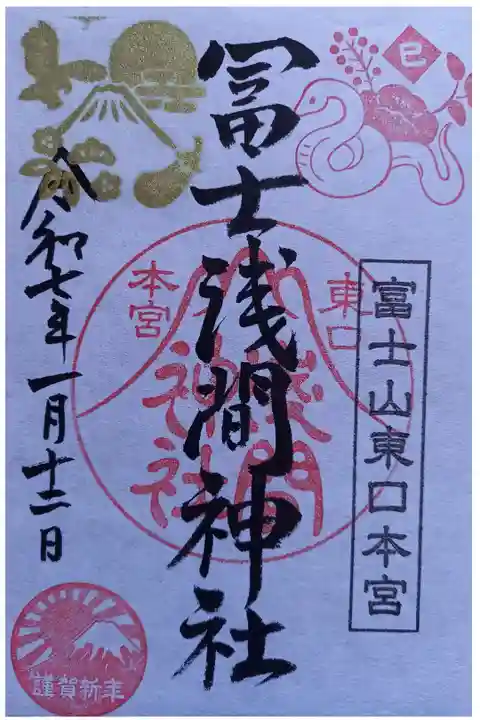 巳
東口
本宮
富士山東口本宮
冨士浅間神社
浅間
神社
令和七年一月十二日
謹賀新年